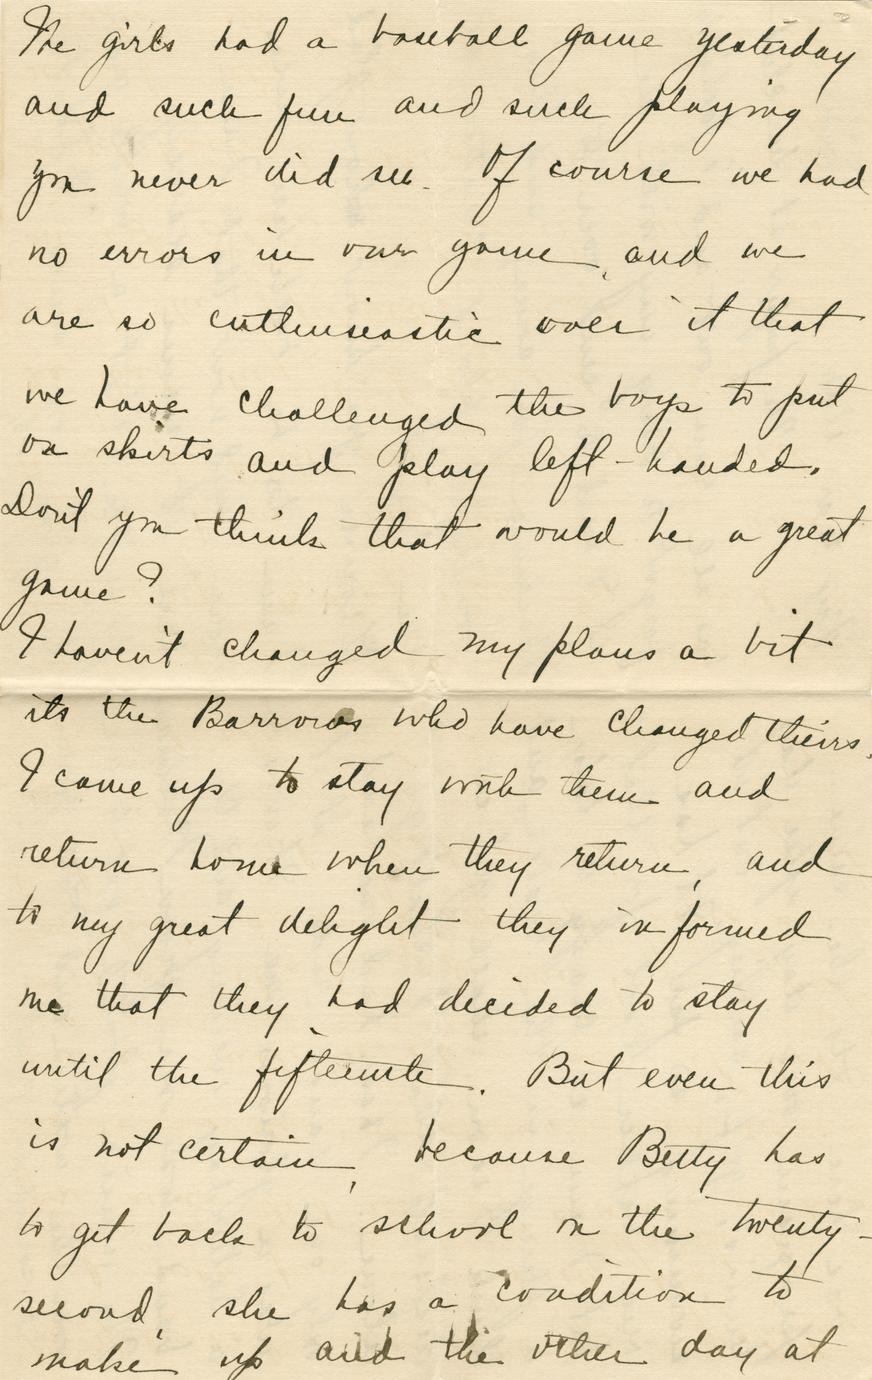 The girls had a baseball game yesterday
and such fun and such playing
you never did see. Of course we had
no errors in our game, and we
are so enthusiastic over it that
we have challenged the boys to put
on skirts and play left-handed.
Don't you think that would be a great
game?
I haven't changed my plans a bit
its the Barrows who have changed theirs.
I came up to stay with them and
return home when they return, and
to my great delight they informed
me that they had decided to stay
until the fifteenth. But even this
is not certain, because Betty has
to get back to school on the twenty-
second, she has a condition to
make up and the other day at